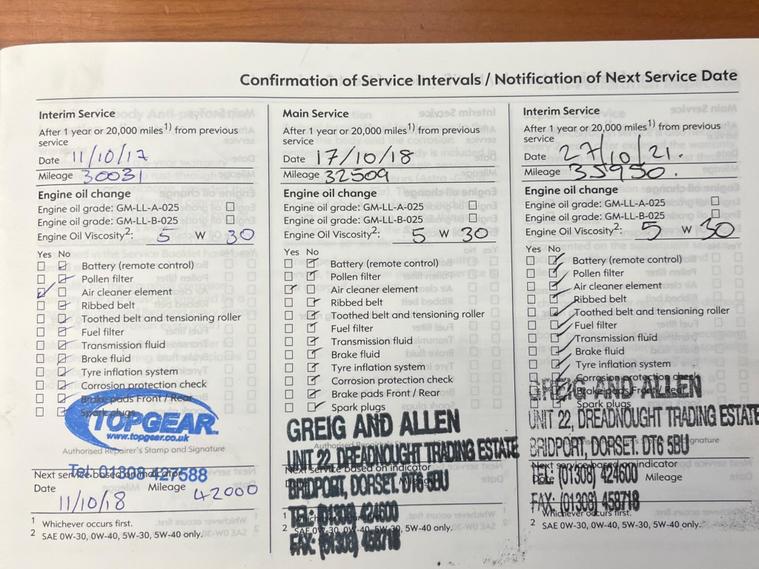 Confirmation of Service Intervals / Notification of Next Service Date
Interim Service
After 1 year or 20,000 miles1) from previous
service
Date 11/10/17
Mileage 30031
Engine oil change
Engine oil grade: GM-LL-A-025
Engine oil grade: GM-LL-B-025
Engine Oil Viscosity2: 5 W 30
Yes No
Battery (remote control)
Pollen filter
Air cleaner element
Ribbed belt
Toothed belt and tensioning roller
Fuel filter
Transmission fluid
Brake fluid
Tyre inflation system
Corrosion protection check
Brake pads Front / Rear
Spark plugs
TOPGEAR
www.topgear.co.uk
Authorised Repairer's Stamp and Signature
Tel: 01308 427588
Next service based on indicator
Date Mileage
11/10/18 42000
1 Whichever occurs first.
2 SAE 0W-30, 0W-40, 5W-30, 5W-40 only.
Main Service
After 1 year or 20,000 miles1) from previous
service
Date 17/10/18
Mileage 32509
Engine oil change
Engine oil grade: GM-LL-A-025
Engine oil grade: GM-LL-B-025
Engine Oil Viscosity2: 5 W 30
Yes No
Battery (remote control)
Pollen filter
Air cleaner element
Ribbed belt
Toothed belt and tensioning roller
Fuel filter
Transmission fluid
Brake fluid
Tyre inflation system
Corrosion protection check
Brake pads Front / Rear
Spark plugs
GREIG AND ALLEN
Authorised
UNIT 22, DREADNOUGHT TRADING ESTATE
Next service based on indicator
BRIDPORT, DORSET. DT6 5BU
Mileage
TEL: (01308) 424600
1 Whichever occurs first.
2 SAE 0W-30, 0W-40, 5W-30, 5W-40 only.
FAX: (01308) 458718
Interim Service
After 1 year or 20,000 miles1) from previous
service
Date 27/10/21.
Mileage 35950.
Engine oil change
Engine oil grade: GM-LL-A-025
Engine oil grade: GM-LL-B-025
Engine Oil Viscosity2: 5 W 30
Yes No
Battery (remote control)
Pollen filter
Air cleaner element
Ribbed belt
Toothed belt and tensioning roller
Fuel filter
Transmission fluid
Brake fluid
Tyre inflation system
Corrosion protection
GREIG AND ALLEN
Brake pads Front / Rear
Spark plugs
UNIT 22, DREADNOUGHT TRADING ESTATE
BRIDPORT, DORSET. DT6 5BU
Signature
Next service based on indicator
TEL: (01308) 424600 Mileage
FAX: (01308) 458718
Whichever occurs first.
2 SAE 0W-30, 0W-40, 5W-30, 5W-40 only.